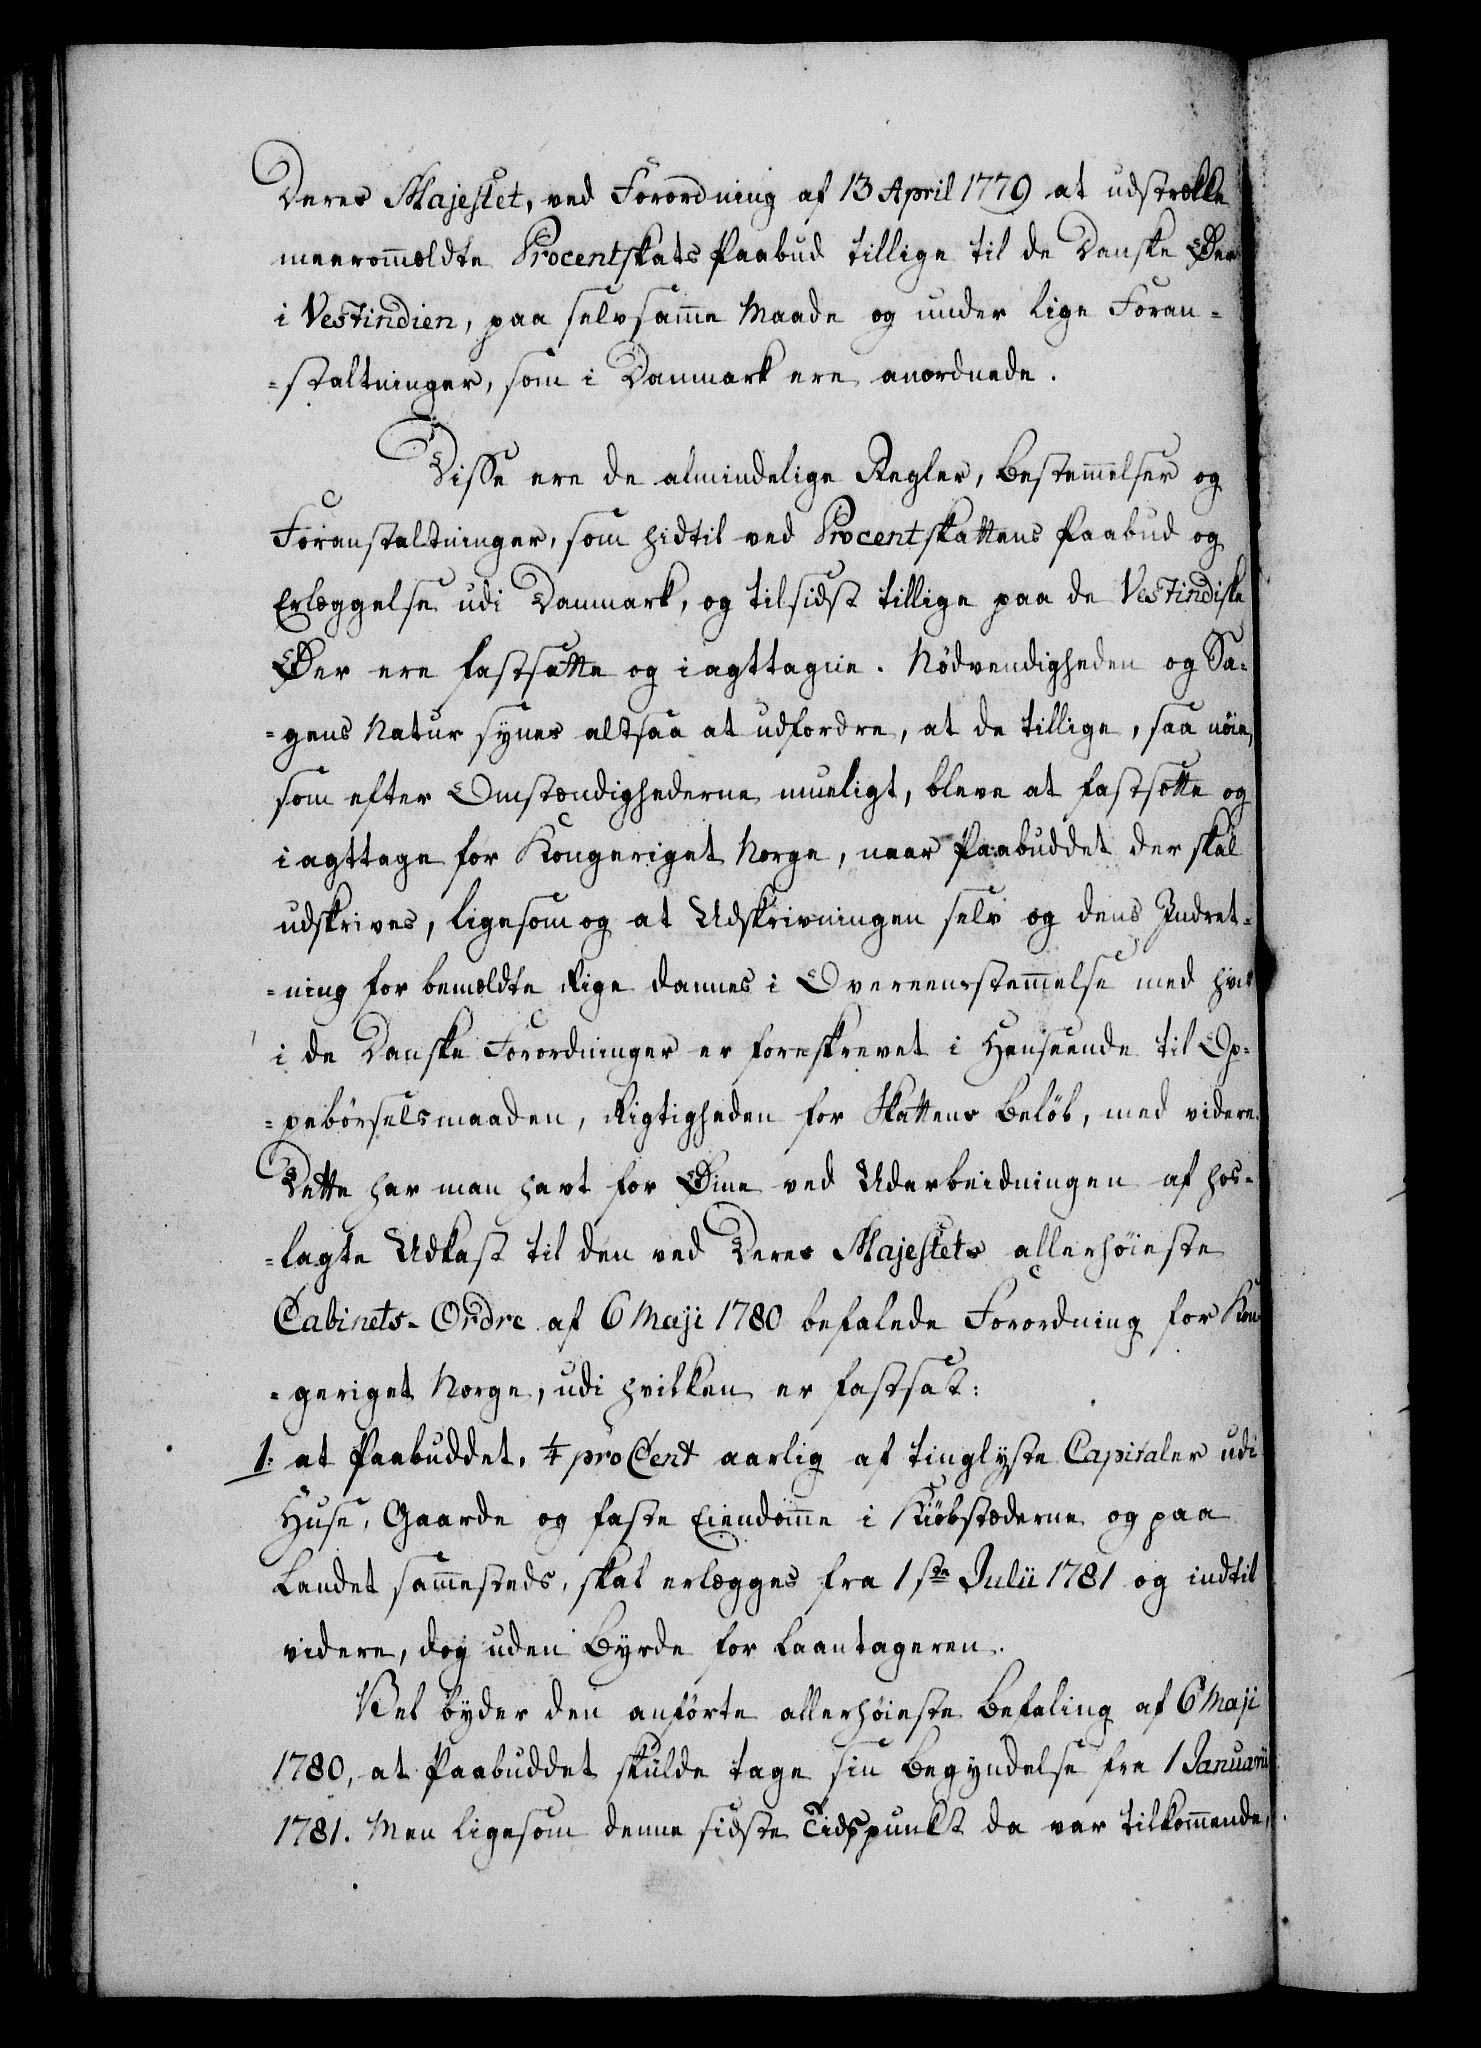 Deres Majestet, ved Forordning af 13 April 1779 at udstrække
meerommældte Procentskats Paabud tillige til de Danske Øer
i Vestindien, paa selvsamme Maade og under lige Foran-
-staltninger, som i Danmark ere anordnede.
Disse ere de almindelige Regler, Bestemmelser og
Foranstaltninger, som hidtil ved Procentskattens Paabud og
Erlæggelse udi Danmark, og tilsidst tillige paa de Vestindiske
Øer ere fastsatte og iagttagne. Nödvendigheden og Sa-
-gens Natur synes altsaa at udfordre, at de tillige, saa nöie,
som efter Omstændighederne mueligt, bleve at fastsætte og
iagttage for Kongeriget Norge, naar Paabuddet der skal
udskrives, ligesom og at Udskrivningen selv og dens Indret-
-ning for bemældte Rige dannes i Overeensstemmelse med hvad
i de Danske Forordninger er foreskrevet i Henseende til Op-
-pebörselsmaaden, Rigtigheden for Skattens Belöb, med videre.
Dette har man havt for Øine ved Udarbeidningen af hos-
-lagte Udkast til den ved Deres Majestets allerhöieste
Cabinets-Ordre af 6 Maji 1780 befalede Forordning for Kon-
-geriget Norge, udi hvilken er fastsat:
1. at Paabuddet, ¼ pro Cent aarlig af tinglyste Capitaler udi
Huse, Gaarde og faste Eiendomme i Kiöbstæderne og paa
Landet sammesteds, skal erlægges fra 1ste Julii 1781 og indtil
videre, dog uden Byrde for Laantageren.
Vel byder den anförte allerhöieste Befaling af 6 Maji
1780, at Paabuddet skulde tage sin Begyndelse fra 1 Januarii
1781. Men ligesom denne sidste Tidspunkt da var tilkommende,